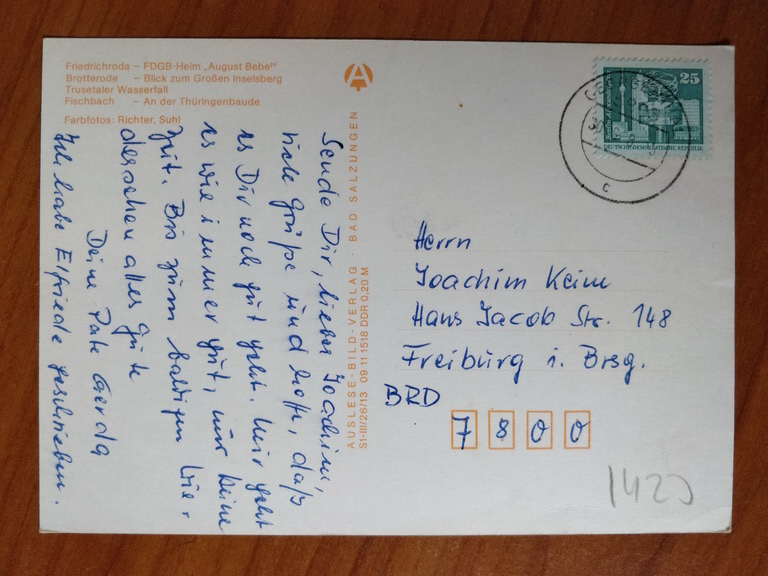 Friedrichroda – FDGB-Heim „August Bebel"
Brotterode – Blick zum Großen Inselsberg
Trusetaler Wasserfall
Fischbach – An der Thüringenbaude
Farbfotos: Richter, Suhl
AUSLESE-BILD-VERLAG · BAD SALZUNGEN
St-III/26/13 09 11 1518 DDR 0,20 M
Sende Dir, lieber Joachim,
viele Grüße und hoffe, daß
es Dir noch gut geht. Mir geht
es wie immer gut, nur keine
Zeit. Bis zum baldigen Wie-
dersehen alles Gute
Deine Pate Gerda
Ich habe Elfriede geschrieben.
25
DEUTSCHE DEMOKRATISCHE REPUBLIK
c
Herrn
Joachim Keim
Hans Jacob Str. 148
Freiburg i. Brsg.
BRD
7 8 0 0